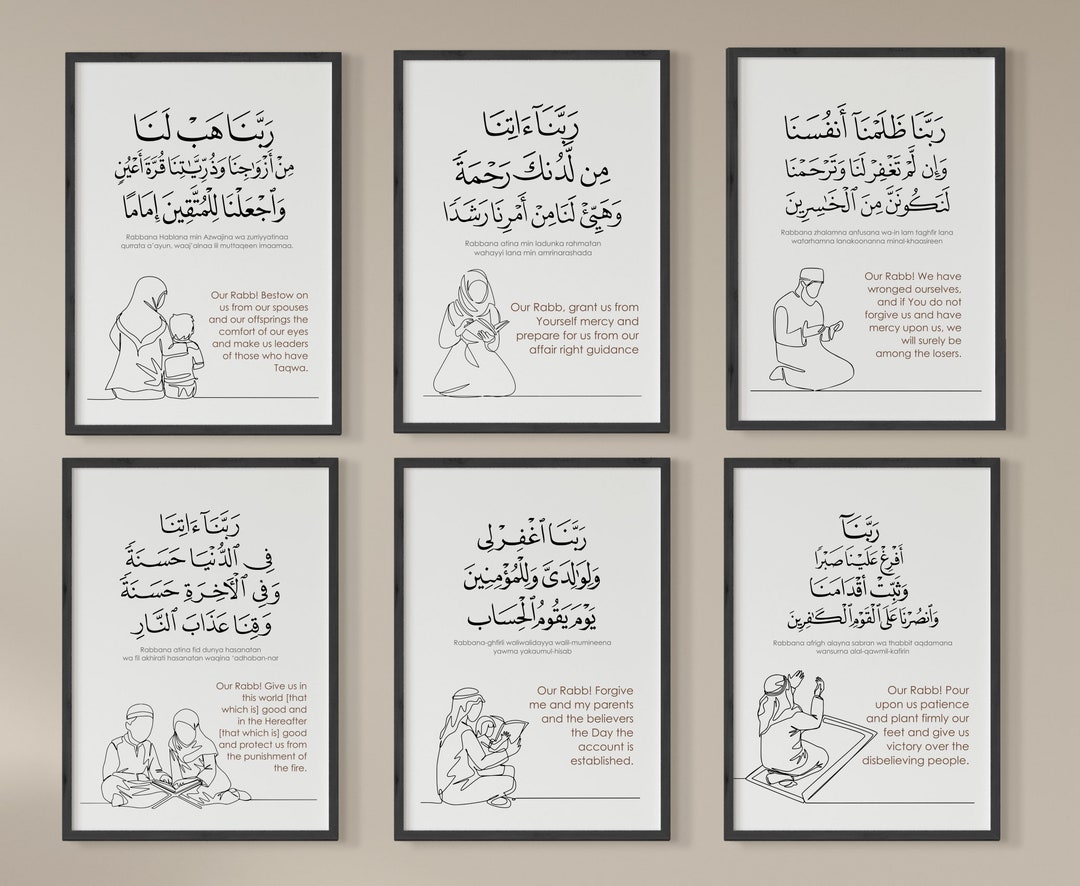 رَبَّنَا هَبْ لَنَا
مِنْ أَزْوَٰجِنَا وَذُرِّيَّـٰتِنَا قُرَّةَ أَعْيُنٍ
وَٱجْعَلْنَا لِلْمُتَّقِينَ إِمَامًا
Rabbana Hablana min Azwajina wa zurriyyatinaa
qurrata a'ayun, waaj'alnaa lil muttaqeen Imaamaa.
Our Rabb! Bestow on
us from our spouses
and our offsprings the
comfort of our eyes
and make us leaders
of those who have
Taqwa.
رَبَّنَآ ءَاتِنَا
مِن لَّدُنكَ رَحْمَةً
وَهَيِّئْ لَنَا مِنْ أَمْرِنَا رَشَدًا
Rabbana atina min ladunka rahmatan
wahayyi lana min amrinarashada
Our Rabb, grant us from
Yourself mercy and
prepare for us from our
affair right guidance
رَبَّنَا ظَلَمْنَآ أَنفُسَنَا
وَإِن لَّمْ تَغْفِرْ لَنَا وَتَرْحَمْنَا
لَنَكُونَنَّ مِنَ ٱلْخَـٰسِرِينَ
Rabbana zhalamna anfusana wa-in lam taghfir lana
watarhamna lanakoonanna minal-khaasireen
Our Rabb! We have
wronged ourselves,
and if You do not
forgive us and have
mercy upon us, we
will surely be
among the losers.
رَبَّنَآ ءَاتِنَا
فِى ٱلدُّنْيَا حَسَنَةً
وَفِى ٱلْـَٔاخِرَةِ حَسَنَةً
وَقِنَا عَذَابَ ٱلنَّارِ
Rabbana atina fid dunya hasanatan
wa fil akhirati hasanatan waqina 'adhaban-nar
Our Rabb! Give us in
this world [that
which is] good and
in the Hereafter
[that which is] good
and protect us from
the punishment of
the fire.
رَبَّنَا ٱغْفِرْ لِى
وَلِوَٰلِدَىَّ وَلِلْمُؤْمِنِينَ
يَوْمَ يَقُومُ ٱلْحِسَابُ
Rabbana-ghfirli waliwalidayya walil-mumineena
yawma yakaumul-hisab
Our Rabb! Forgive
me and my parents
and the believers
the Day the
account is
established.
رَبَّنَآ
أَفْرِغْ عَلَيْنَا صَبْرًا
وَثَبِّتْ أَقْدَامَنَا
وَٱنصُرْنَا عَلَى ٱلْقَوْمِ ٱلْكَـٰفِرِينَ
Rabbana afrigh alayna sabran wa thabbit aqdamana
wansurna alal-qawmil-kafirin
Our Rabb! Pour
upon us patience
and plant firmly our
feet and give us
victory over the
disbelieving people.